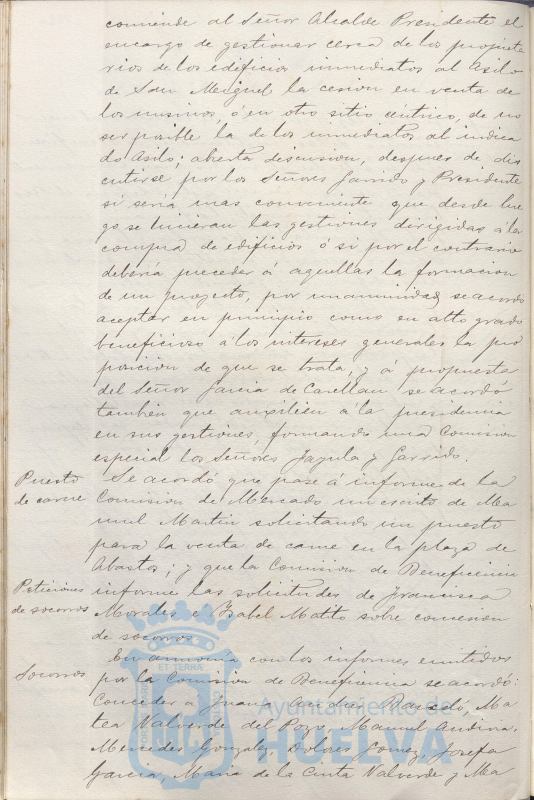 comiende al Señor Alcalde Presidente el
encargo de gestionar cerca de los propieta
rios de los edificios inmediatos al Asilo
de San Miguel la cesion en venta de
los mismos, ó en otro sitio céntrico, de no
ser posible la de los inmediatos al indica
do Asilo; abierta discusion, despues de dis
cutirse por los Señores Garrido y Presidente
si seria mas conveniente que desde lue
go se hicieran las gestiones dirigidas á la
compra de edificios ó si por el contrario
debería preceder a aquellas la formacion
de un proyecto, por unanimidad se acordó
aceptar en principio como en alto grado
beneficioso á los intereses generales la pro
posicion de que se trata, y á propuesta
del Señor Garcia de se acordó
tambien que auxilien á la presidencia
en sus gestiones, formando una Comision
especial los Señores y Garrido.
Puesto
de carne
Se acordó que pase á informe de la
Comision de Mercado un escrito de Ma
nuel Martin solicitando un puesto
para la venta de carne en la plaza de
Abastos; y que la Comision de Beneficencia
Peticiones
de socorros
informe las solicitudes de Francisca
Morales é Isabel Matto sobre concesion
de socorros.
Socorros
En armonía con los informes emitidos
por la Comision de Beneficencia se acordó:
Conceder a Juana Barceló, Ma
tea Valverde del Pozo, Manuel
Mercedes Gonzalez, Dolores Gomez, Josefa
Garcia, Maria de la Cinta Valverde y Ma
ET TERRA
Ayuntamiento de
HUELVA